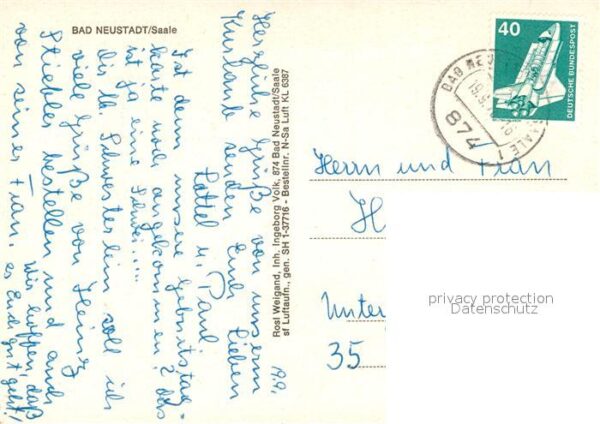 BAD NEUSTADT/Saale
Herzliche Grüße von unserm
Kurlaub senden Euch Lieben
Lottel u. Paul
Ist denn unsere Geburtstag-
karte noch angekommen? das
ist ja eine
die lb. Schwester lein soll ich
viele Grüße von Heinz
Stiebler bestellen und auch
von seiner Frau.
Wir hoffen, daß
es Euch gut geht!
Rosl Weigand, Inh. Ingeborg Volk, 874 Bad Neustadt/Saale
sf Luftaufn., gen. SH 1-37716 - Bestellnr. N-Sa Luft KL 6387
40
DEUTSCHE BUNDESPOST
874
Herrn und Frau
H
Unter
35
privacy protection
Datenschutz